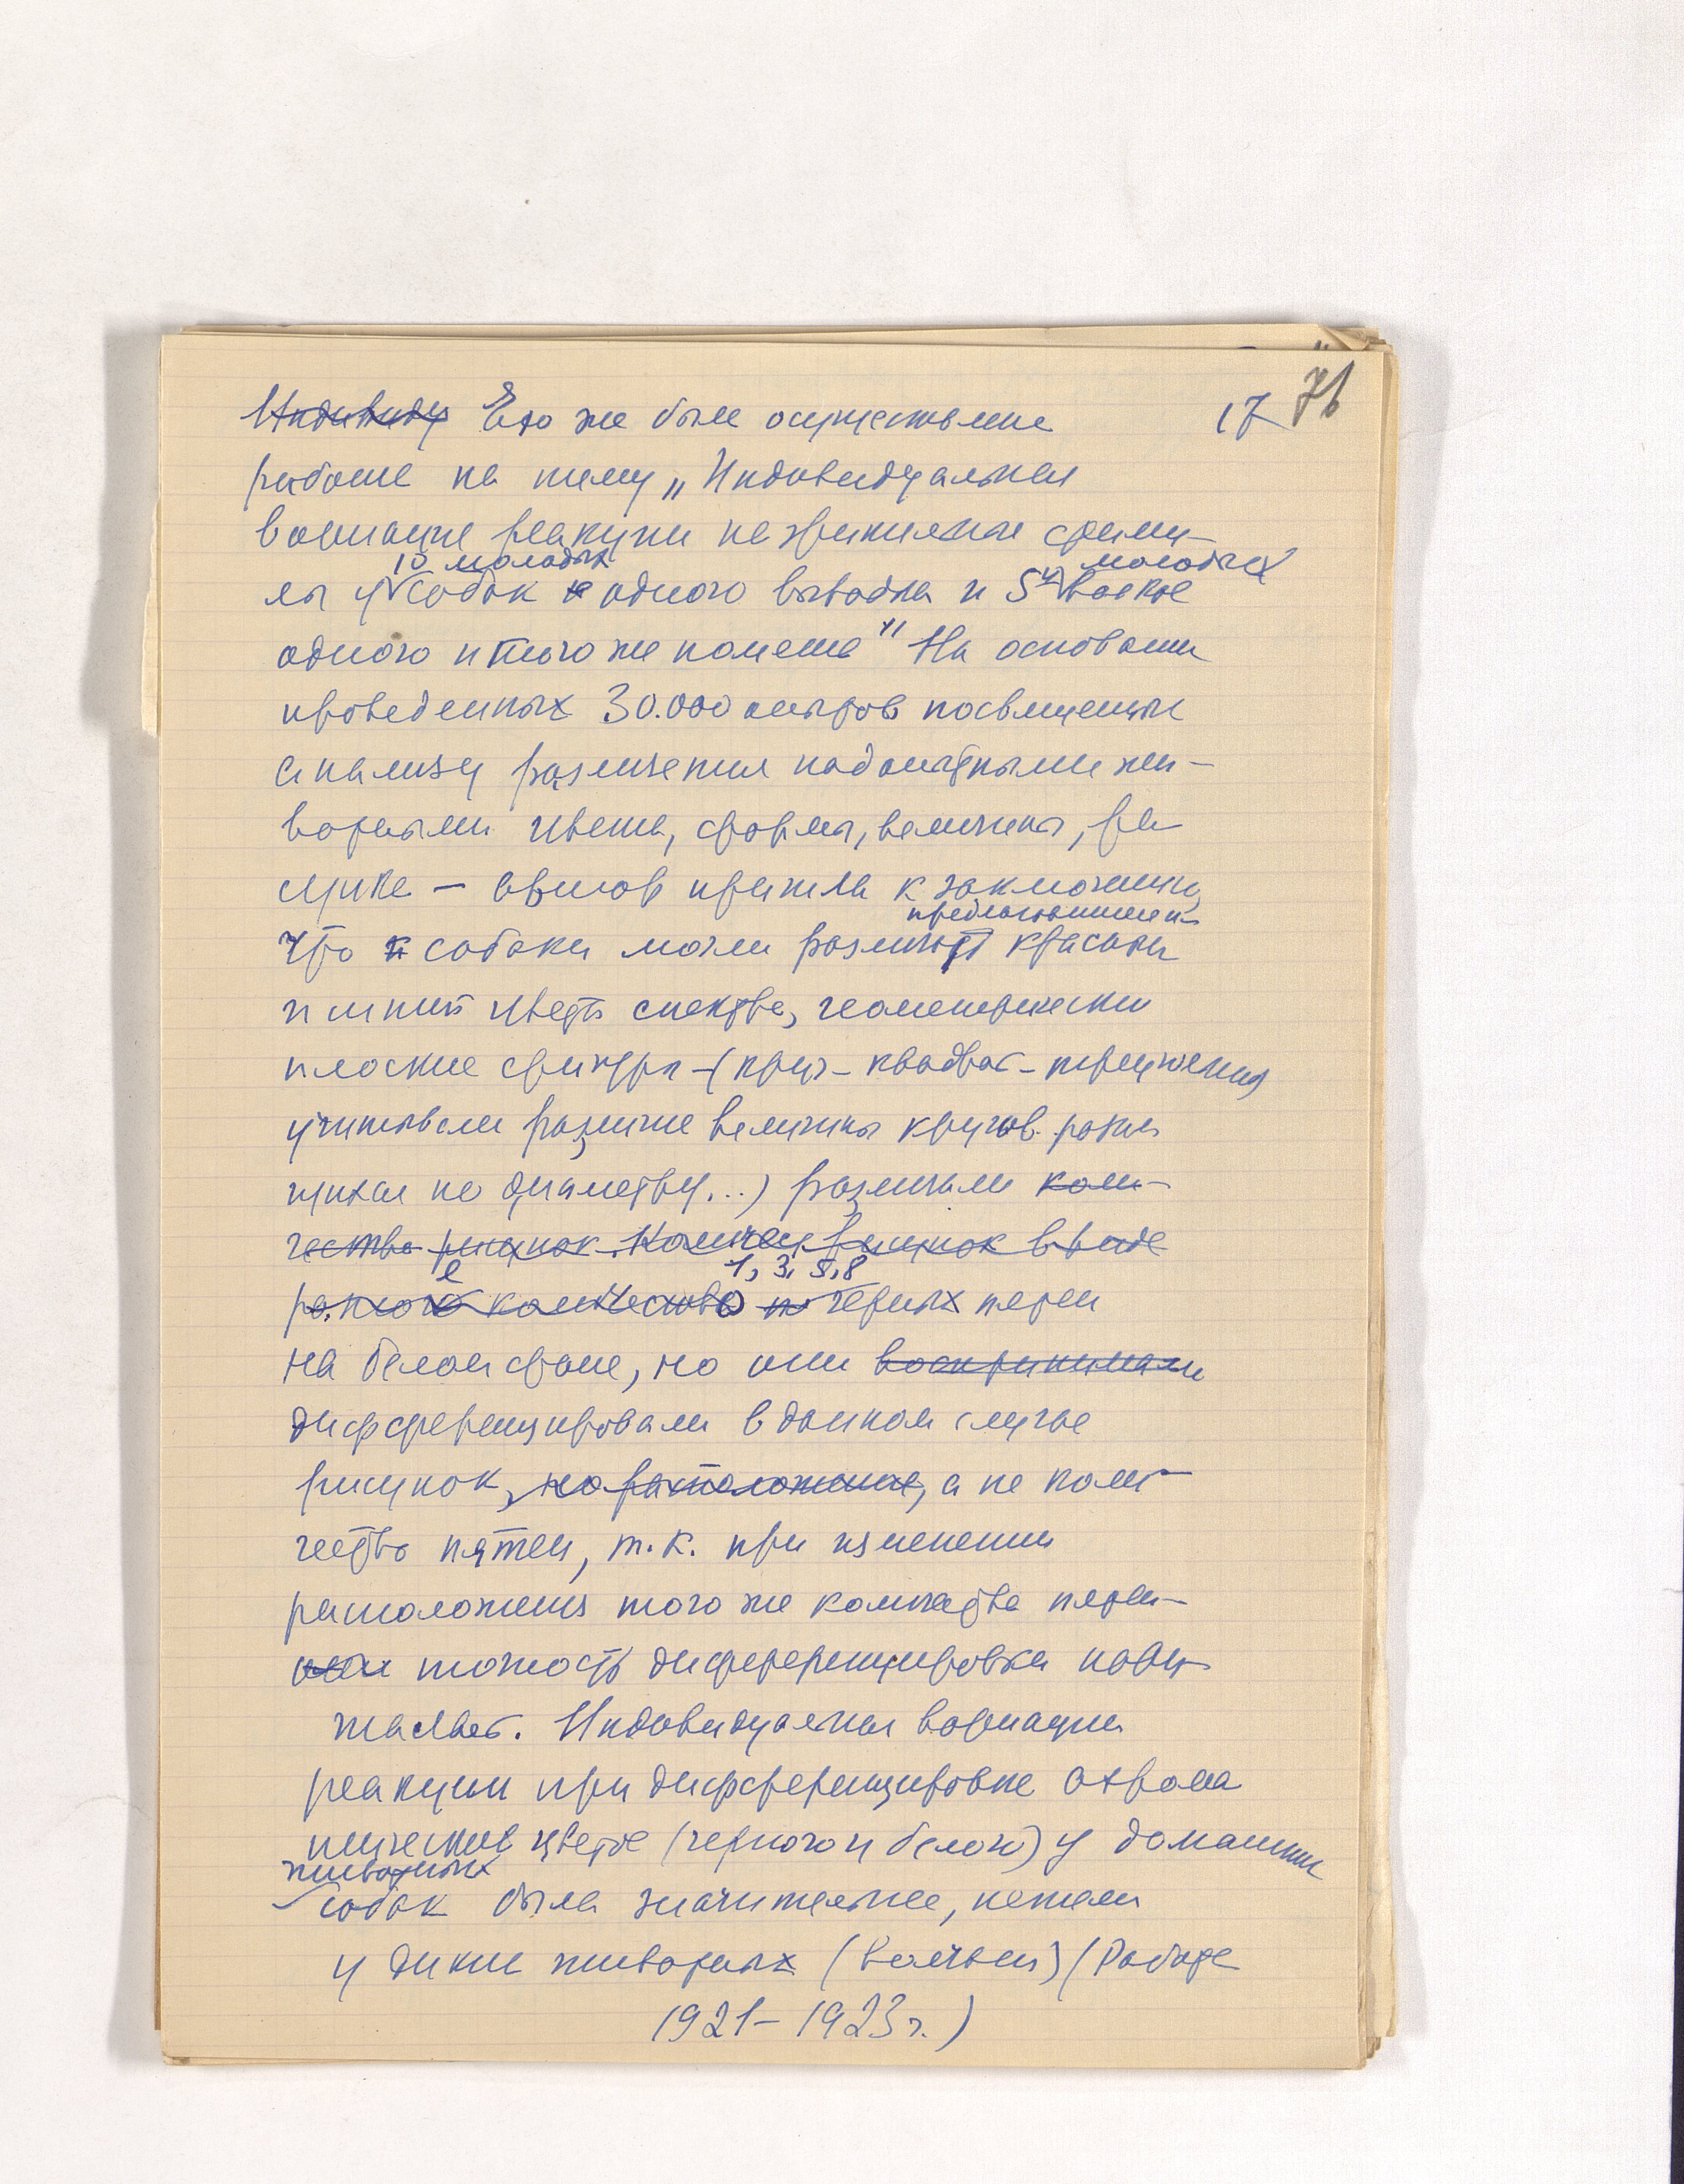 17 76
Индивиду Ею же была осуществлена
работа на тему „Индивидуальная
вариация реакции на зрительные стиму-
лы у собак одного выводка и 5ти волков
10 молодых молодых
одного и того же помета" На основании
проведенных 30.000 опытов посвященных
анализу различения подопытными жи-
вотными цвета, формы, величины, ри-
сунка — автор пришла к заключению,
что собаки могли различать красный
и синий цвета спектра, геометрически
плоские фигуры – (круг – квадрат –
учитывали различие величины кругов
по диаметру...) различали коли-
чество рисунок. Количес рисунок в виде
1, 3, 5, 8
разное количество черных пятен
на белом фоне, но они воспринимали
дифференцировали в данном случае
рисунок, но расположение, а не коли-
чество пятен, т.к. при изменении
расположения того же количества пятен
точность дифференцировки нару-
шалась. Индивидуальная вариация
реакции при дифференцировке ахрома
тических цветов (черного и белого) у домашних
животных
собак была значительнее, нежели
у диких животных (волчьей) (Работа
1921 – 1923 г.)